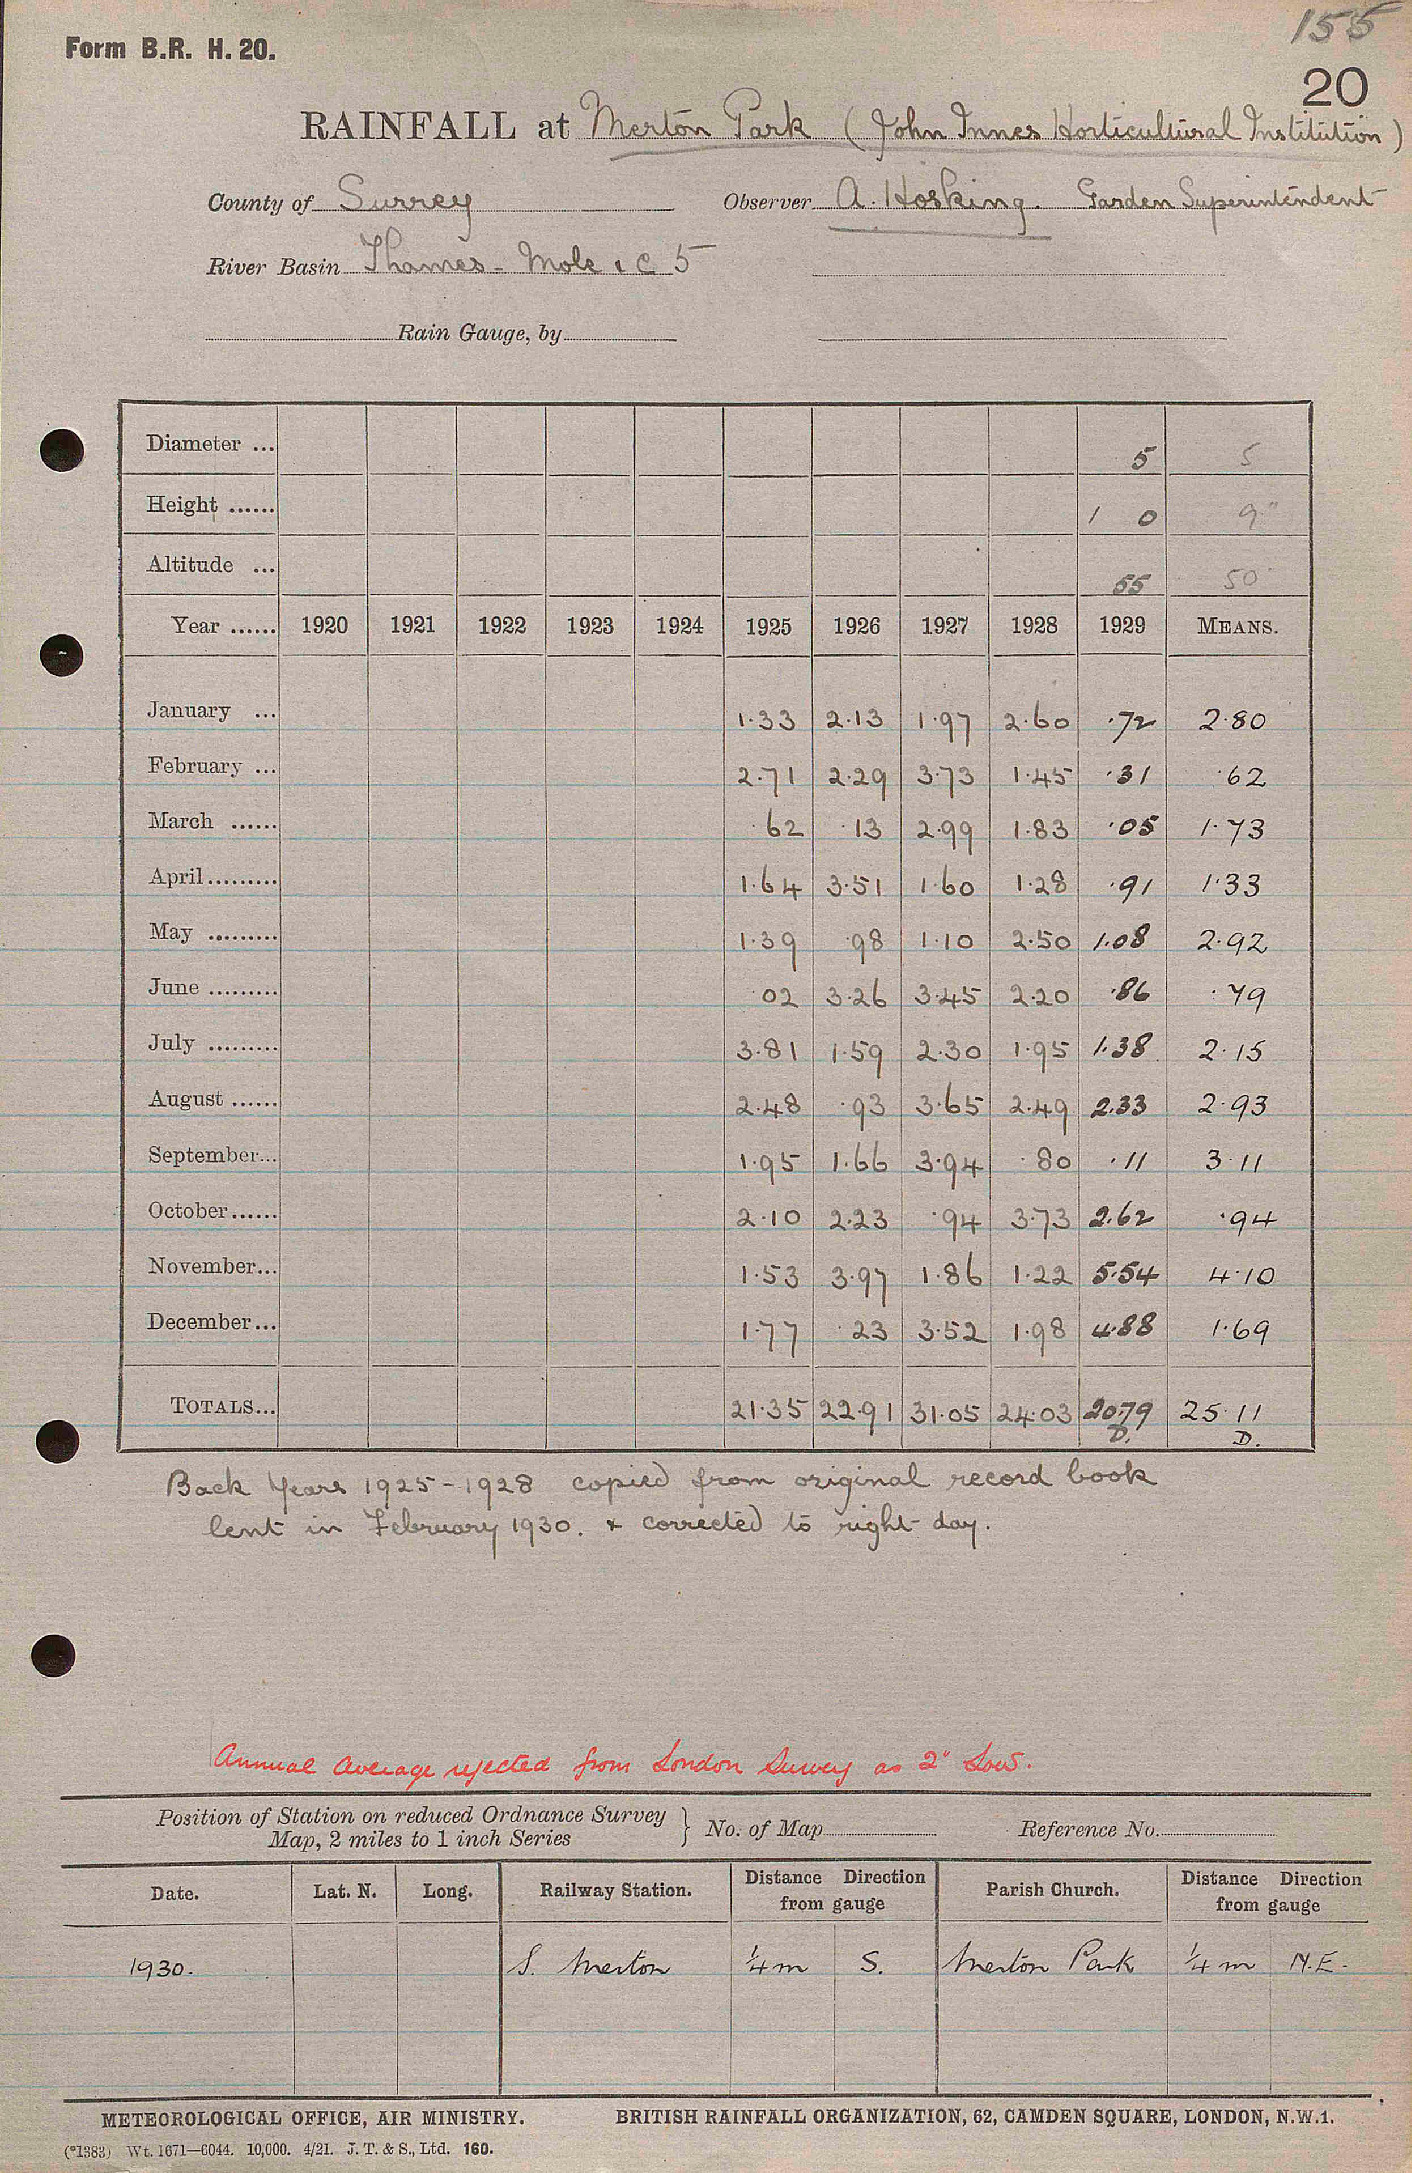 155
Form B.R. H. 20.
20
RAINFALL at Merton Park (John Innes Horticultural Institution)
County of Surrey Observer A. Hosking. Garden Superintendent
River Basin Thames - Mole & C 5
Rain Gauge, by
Diameter ... 5 5
Height ...... 1 0 9"
Altitude ... 55 50
Year ...... 1920 1921 1922 1923 1924 1925 1926 1927 1928 1929 MEANS.
January ... 1.33 2.13 1.97 2.60 .72 2.80
February ... 2.71 2.29 3.73 1.45 .31 .62
March ...... .62 .13 2.99 1.83 .05 1.73
April......... 1.64 3.51 1.60 1.28 .91 1.33
May ......... 1.39 .98 1.10 2.50 1.08 2.92
June ......... .02 3.26 3.45 2.20 .86 .79
July ......... 3.81 1.59 2.30 1.95 1.38 2.15
August ...... 2.48 .93 3.65 2.49 2.33 2.93
September... 1.95 1.66 3.94 .80 .11 3.11
October...... 2.10 2.23 .94 3.73 2.62 .94
November... 1.53 3.97 1.86 1.22 5.54 4.10
December... 1.77 .23 3.52 1.98 4.88 1.69
TOTALS... 21.35 22.91 31.05 24.03 20.79 25.11
D. D.
Back Years 1925-1928 copied from original record book
lent in February 1930. & corrected to right day.
Annual Average rejected from London Survey as 2" Low.
Position of Station on reduced Ordnance Survey Map, 2 miles to 1 inch Series } No. of Map Reference No.
Date. Lat. N. Long. Railway Station. Distance Direction from gauge Parish Church. Distance Direction from gauge
1930. S. Merton 1/4 m S. Merton Park 1/4 m N.E.
METEOROLOGICAL OFFICE, AIR MINISTRY. BRITISH RAINFALL ORGANIZATION, 62, CAMDEN SQUARE, LONDON, N.W.1.
(*1383) Wt. 1671—6044. 10,000. 4/21. J. T. & S., Ltd. 160.